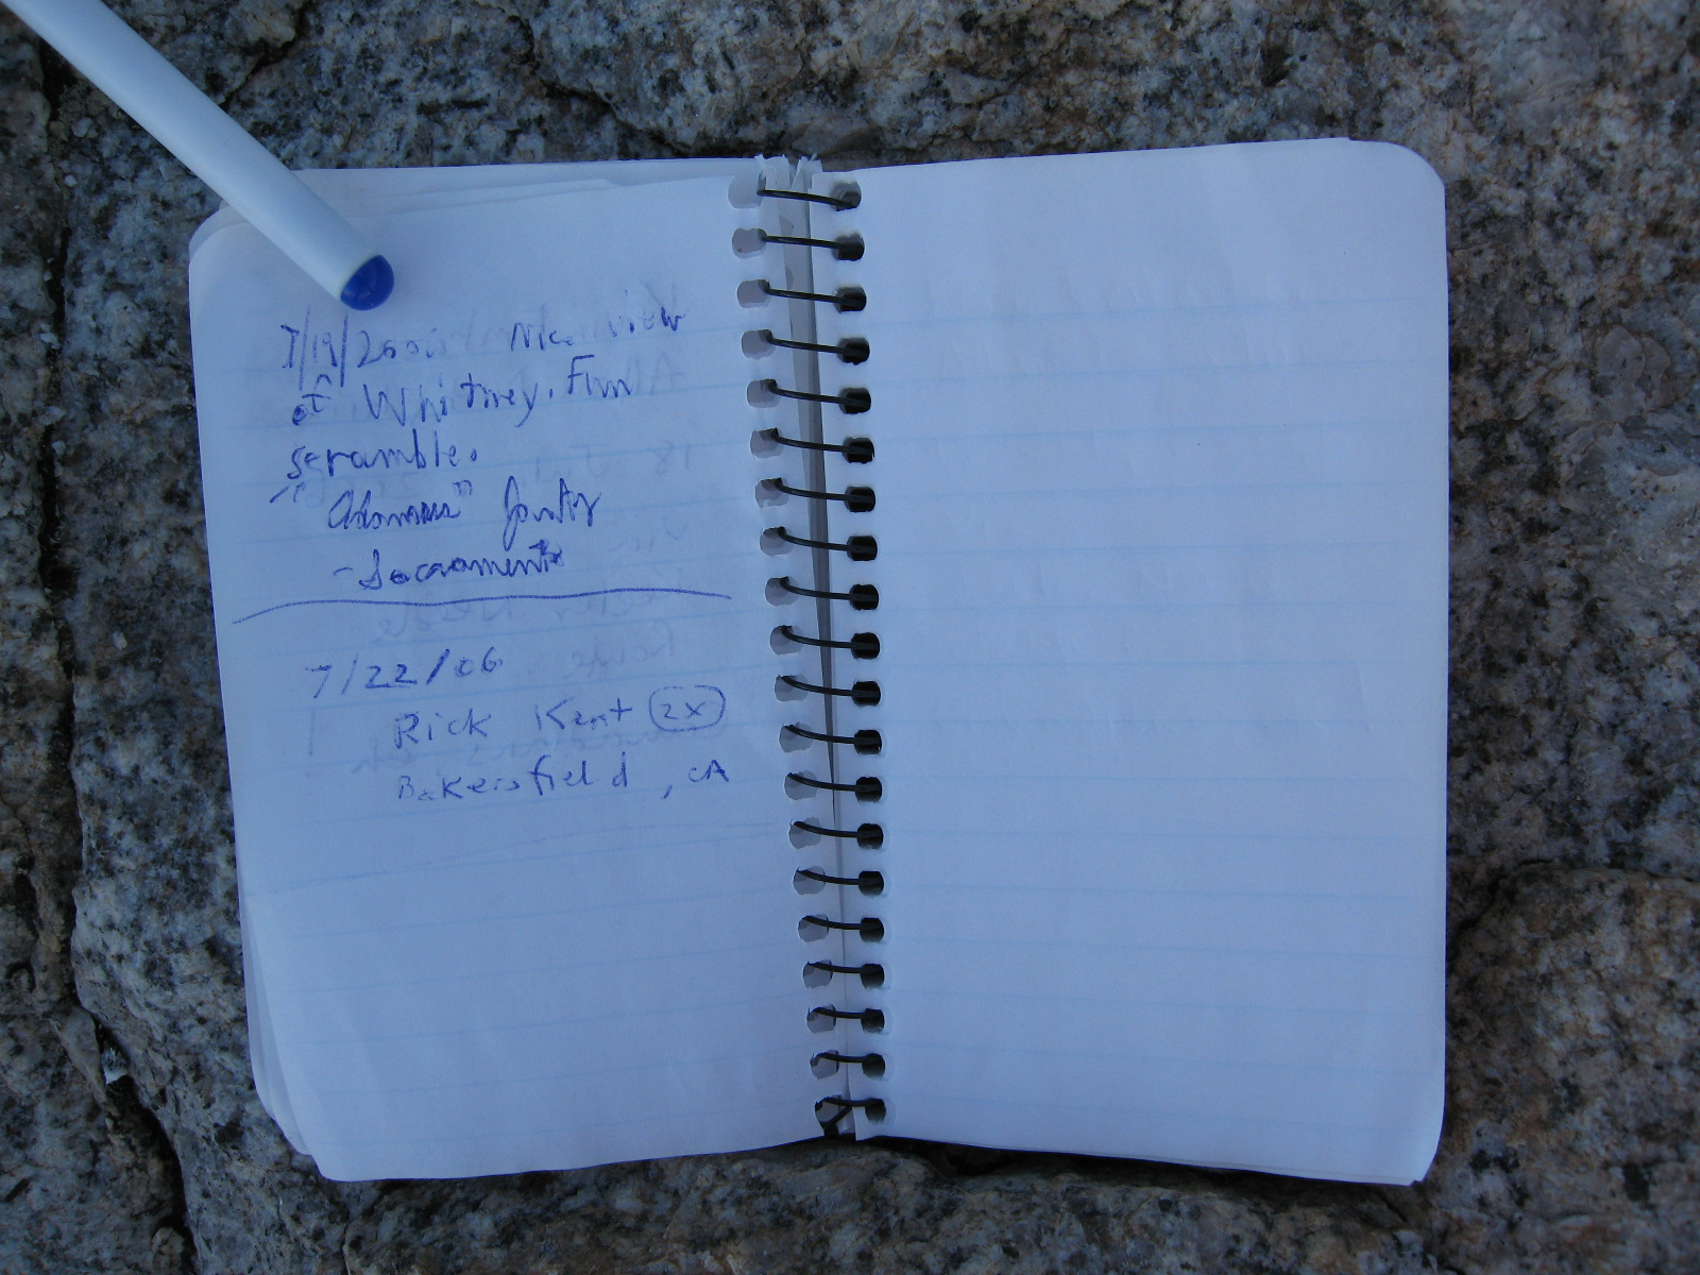 7/19/200 Nice view
of Whitney. Fun
scramble.
-Sacramento
7/22/06
Rick Kent 2x
Bakersfield, CA